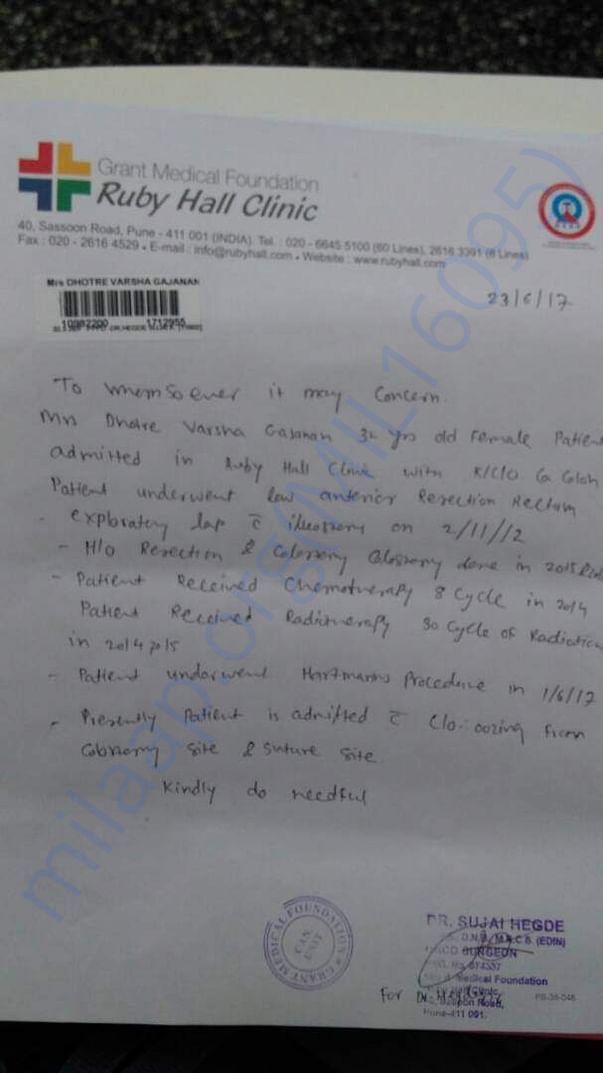 Grant Medical Foundation
Ruby Hall Clinic
40, Sassoon Road, Pune - 411 001 (INDIA). Tel. : 020 - 6645 5100 (60 Lines), 2616 3391 (8 Lines)
Fax : 020 - 2616 4529 • E-mail : info@rubyhall.com • Website : www.rubyhall.com
Mrs DHOTRE VARSHA GAJANAN
10982200 1712955
23/6/17
To whomsoever it may concern.
Mrs Dhotre Varsha Gajanan 32 yrs old Female Patient
admitted in Ruby Hall Clinic with K/C/O Ca Colon
Patient underwent low anterior Resection Rectum
- exploratory lap c̄ ileostomy on 2/11/12
- H/O Resection & Colostomy done in 2015
- Patient Received Chemotherapy 8 cycle in 2014
Patient Received Radiotherapy 30 cycle of Radiation
in 2014 2015
- Patient underwent Hartmanns Procedure in 1/6/17
- Presently Patient is admitted c̄ C/O: oozing from
Colostomy site & suture site
Kindly do needful
milaap.org(MIL16095)
GRANT MEDICAL FOUNDATION
CAN
UNIT
DR. SUJAI HEGDE
D.N.B., M.R.C.S. (EDIN)
SURGEON
Medical Foundation
Clinic,
Road,
Pune-411 001.
For Dr.